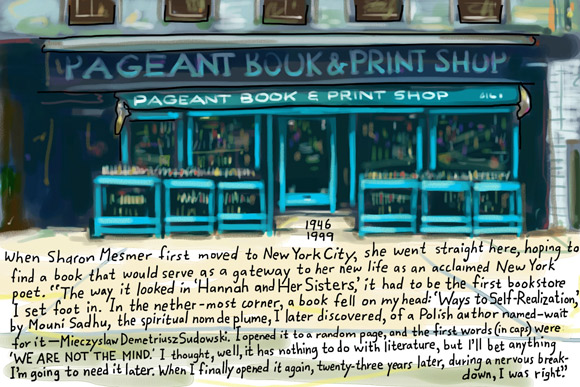 PAGEANT BOOK & PRINT SHOP
PAGEANT BOOK & PRINT SHOP
1946
1999
When Sharon Mesmer first moved to New York City, she went straight here, hoping to
find a book that would serve as a gateway to her new life as an acclaimed New York
poet. "The way it looked in 'Hannah and Her Sisters,' it had to be the first bookstore
I set foot in. In the nether-most corner, a book fell on my head: 'Ways to Self-Realization,'
by Mouni Sadhu, the spiritual nom de plume, I later discovered, of a Polish author named—wait
for it—Mieczyslaw Demetriusz Sudowski. I opened it to a random page, and the first words (in caps) were
'WE ARE NOT THE MIND.' I thought, well, it has nothing to do with literature, but I'll bet anything
I'm going to need it later. When I finally opened it again, twenty-three years later, during a nervous break-
down, I was right."